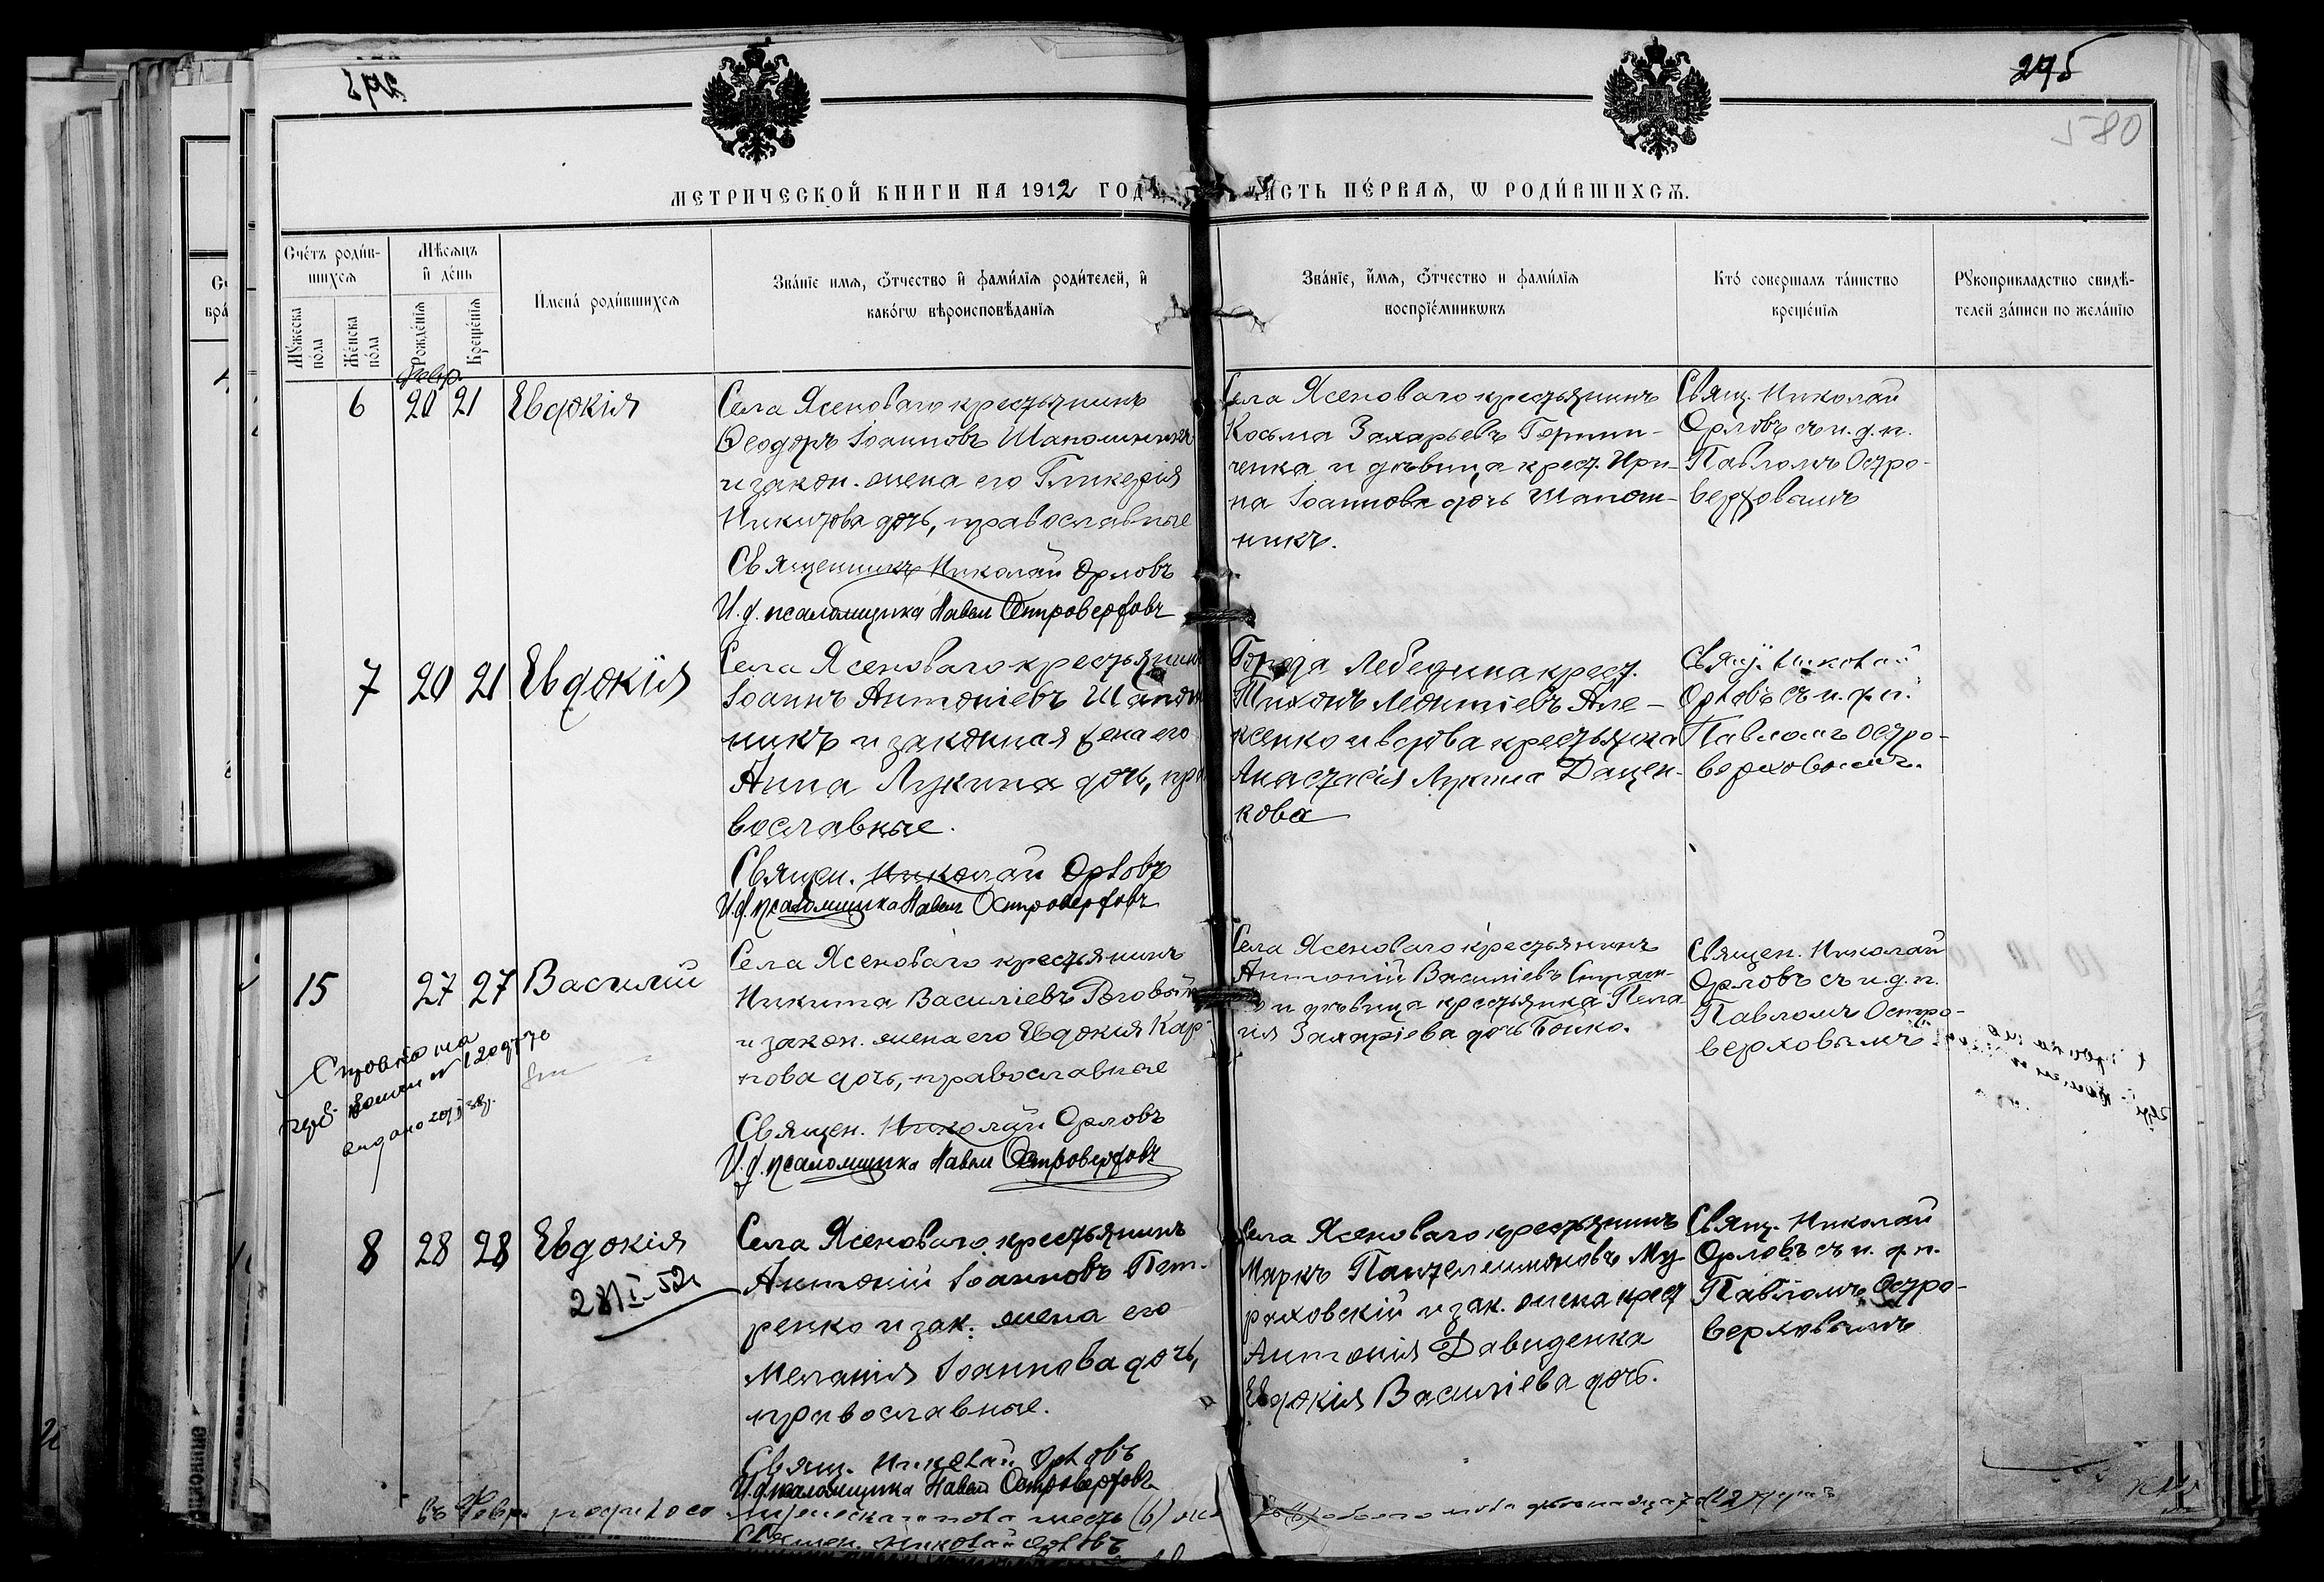 295
580
МЕТРИЧЕСКОЙ КНИГИ НА 1912 ГОДЪ, ЧАСТЬ ПЕРВАЯ, Ѡ РОДИВШИХСЯ.
Счетъ родив-
шихся
Мужеска
пола
Женска
пола
Мѣсяцъ
и день
Рожденія
Крещенія
Имена родившихся
Званіе имя, отчество и фамилія родителей, и
какогѡ вѣроисповѣданія
Званіе, имя, отчество и фамилія
воспріемникѡвъ
Кто совершалъ таинство
крещенія
Рукоприкладство свидѣ-
телей записи по желанію
Февр.
6 20 21 Евдокія
Села Ясеноваго крестьянинъ
Ѳеодоръ Іоанновъ Шапошникъ
и закон. жена его Гликерія
Никитова дочь, православные
Священникъ Николай Орловъ
И.д. псаломщика Павелъ Островерховъ
Села Ясеноваго крестьянинъ
Косьма Захарьевъ
ченка и дѣвица крест. Ири-
на Іоаннова дочь Шапош-
никъ.
Свящ. Николай
Орловъ съ и.д.п.
Павломъ Остро-
верховымъ
7 20 21 Евдокія
Села Ясеноваго крестьянинъ
Іоаннъ Антоніевъ Шапош
никъ и законная жена его
Анна Лукина дочь, пра
вославные.
Священ. Николай Орловъ
И.д. псаломщика Павелъ Островерховъ
Города Лебедина крест.
Тихонъ Леонтіевъ Але-
ксенко и вдова крестьянка
Анастасія Лукина Дацен-
кова
Свящ. Николай
Орловъ съ и.д.п.
Павломъ Остро-
верховымъ.
15 27 27 Василій
Села Ясеноваго крестьянинъ
Никита Василіевъ Роговой
и закон. жена его Евдокія Кар-
пова дочь, православные
Священ. Николай Орловъ
И.д. псаломщика Павелъ Островерховъ
Села Ясеноваго крестьянинъ
Антоній Василіевъ
и дѣвица крестьянка Пела
гія Захаріева дочь Бойко.
Священ. Николай
Орловъ съ и.д.п.
Павломъ Остро-
верховымъ
8 28 28 Евдокія
28/I-52
Села Ясеноваго крестьянинъ
Антоній Іоанновъ Пет-
ренко и зак. жена его
Меланія Іоаннова дочь,
православные.
Свящ. Николай Орловъ
И.д. псаломщика Павелъ Островерховъ
Села Ясеноваго крестьянинъ
Маркъ Пантелеимоновъ Му
раховскій и зак. жена крест
Антонія Давиденка
Евдокія Василіева дочь.
Свящ. Николай
Орловъ съ и.д.п.
Павломъ Остро-
верховымъ
Въ Февр. родилось мужескаго пола шесть (6)
обоего пола двѣнадцать (12) душъ
Священ. Николай Орловъ